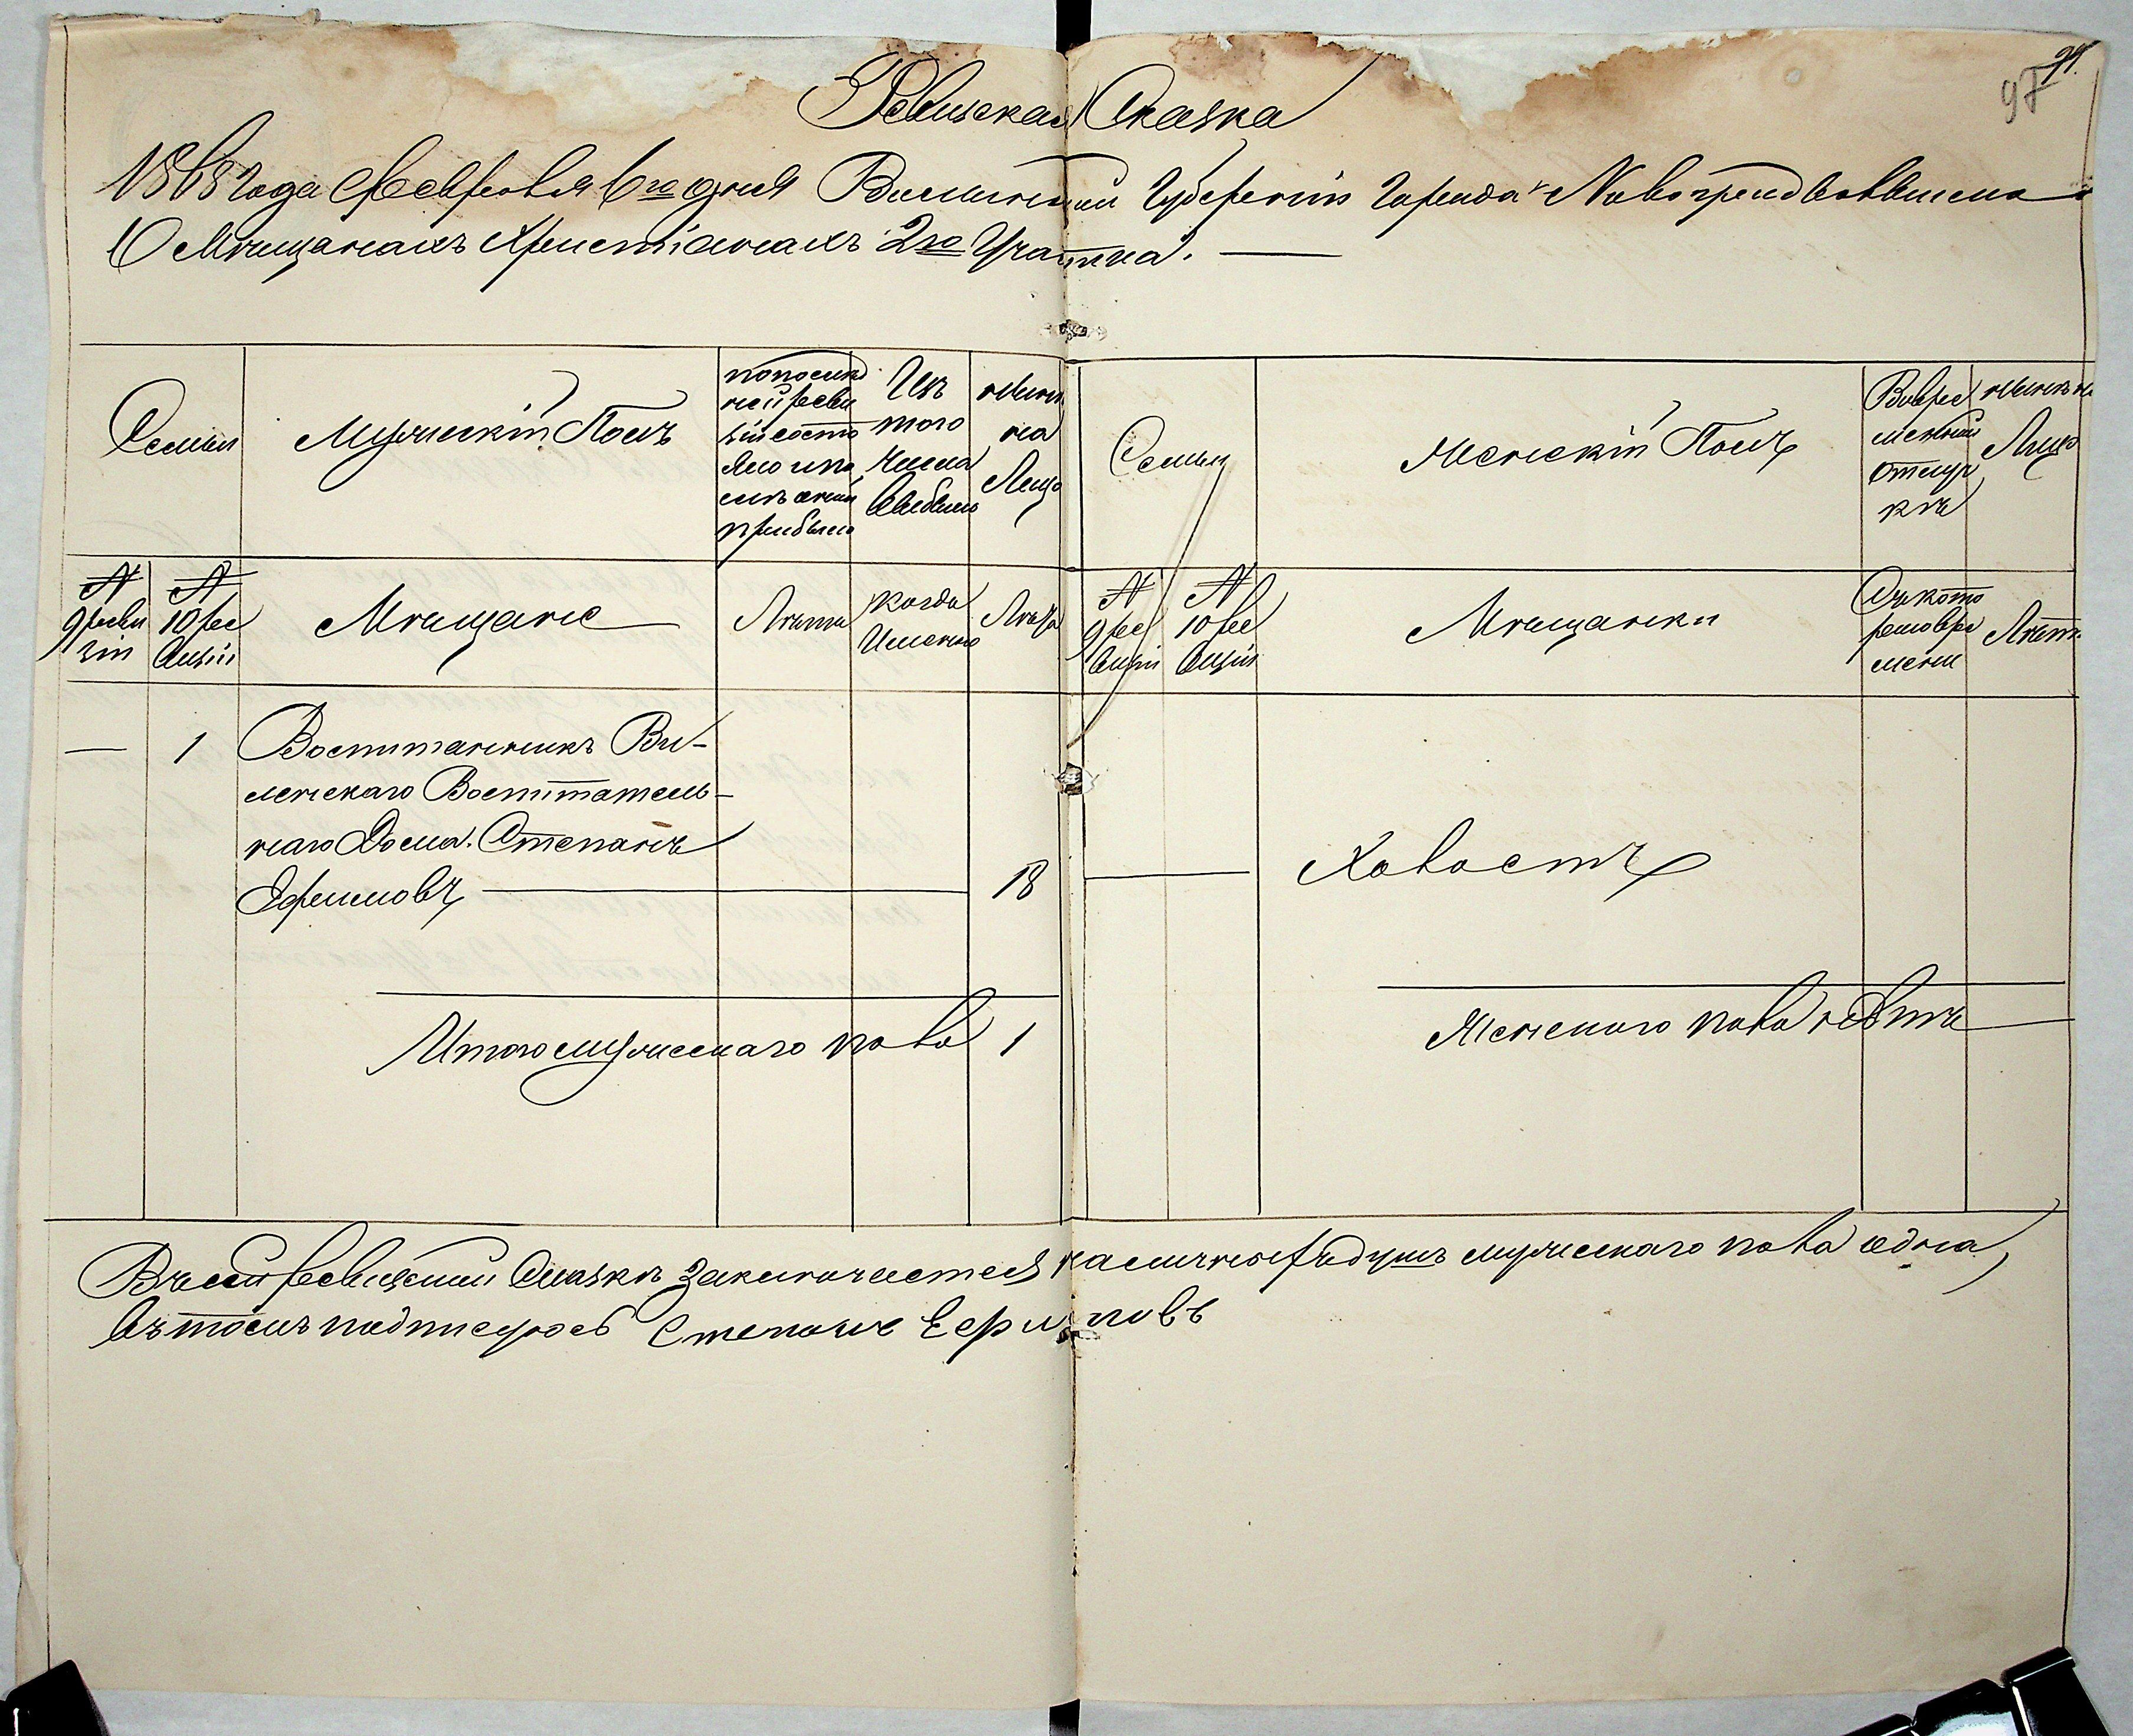 97 91.
Ревизская Сказка
1868 года Февраля 6го дня Виленской Губернии Города Новоалександровска
О Мѣщанахъ Христіанахъ 2го Участка.
Семьи
Мужескій Полъ
по послѣд
ней реви
зіи состо
яло и по
слѣ оной
прибыло
Изъ
того
числа
выбыло
Нынѣ
на
Лицо
Семьи
Женскій Полъ
Во вре
менной
отлуч
кѣ
Нынѣ на
Лицо
№
9 реви
зіи
№
10 ре
визіи
Мѣщане
Лѣта
когда
Именно
Лѣта
№
9 ре
визіи
№
10 ре
визіи
Мѣщанки
Съ кото
раго вре
мени
Лѣта
— 1 Воспитанникъ Ви-
ленскаго Воспитатель-
наго Дома. Степанъ
Ефимовъ — 18
Холостъ
Итого мужескаго пола 1
Женскаго пола нѣтъ
Въ сей ревизской сказкѣ заключается наличныхъ душъ мужескаго пола одна,
въ томъ подписуюсь Степанъ Ефимовъ